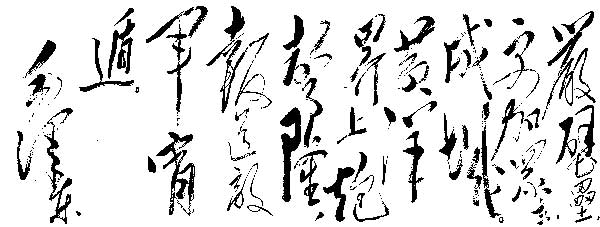 嚴壁壘，
更加眾志
成城。
黃洋
界上炮
聲隆，
報道敵
軍宵
遁。
毛澤東